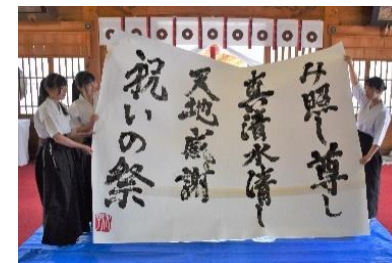 み照し尊し
真清水清し
天地感謝
祝いの祭